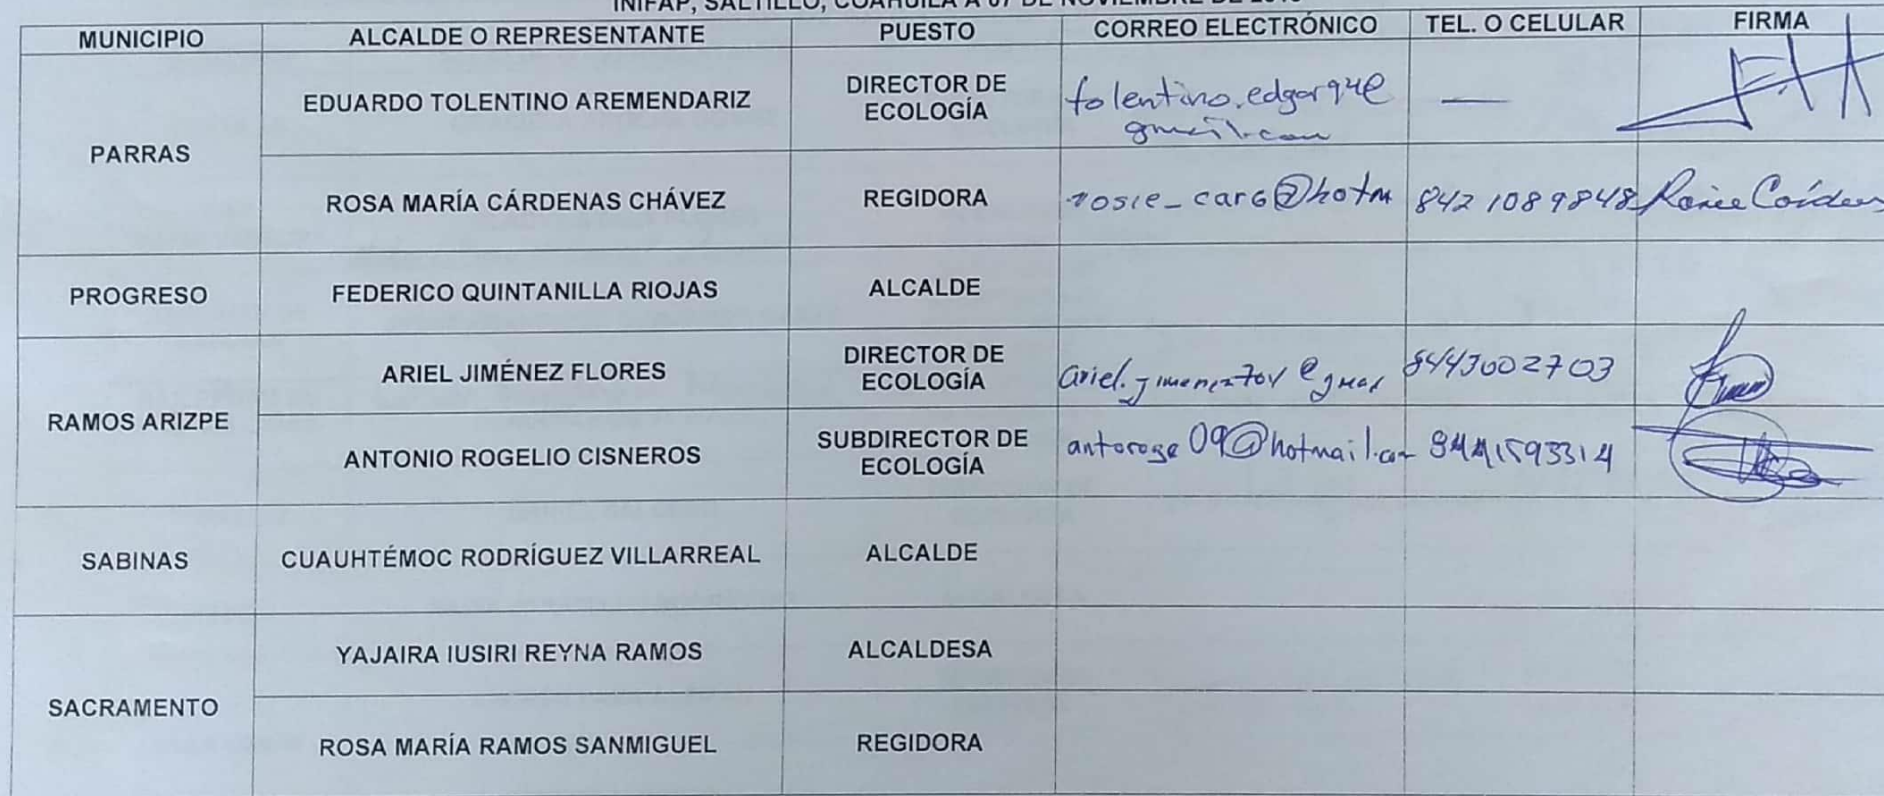 INIFAP, SALTILLO, COAHUILA A 07 DE NOVIEMBRE DE
MUNICIPIO ALCALDE O REPRESENTANTE PUESTO CORREO ELECTRÓNICO TEL. O CELULAR FIRMA
PARRAS
EDUARDO TOLENTINO AREMENDARIZ
DIRECTOR DE
ECOLOGÍA
tolentino.edgar94@
gmail.com
ROSA MARÍA CÁRDENAS CHÁVEZ REGIDORA rosie_car6@hotm 842 108 9848
PROGRESO FEDERICO QUINTANILLA RIOJAS ALCALDE
RAMOS ARIZPE
ARIEL JIMÉNEZ FLORES
DIRECTOR DE
ECOLOGÍA
8443002703
ANTONIO ROGELIO CISNEROS
SUBDIRECTOR DE
ECOLOGÍA
antoroge09@hotmail.com 8441593314
SABINAS CUAUHTÉMOC RODRÍGUEZ VILLARREAL ALCALDE
SACRAMENTO
YAJAIRA IUSIRI REYNA RAMOS ALCALDESA
ROSA MARÍA RAMOS SANMIGUEL REGIDORA